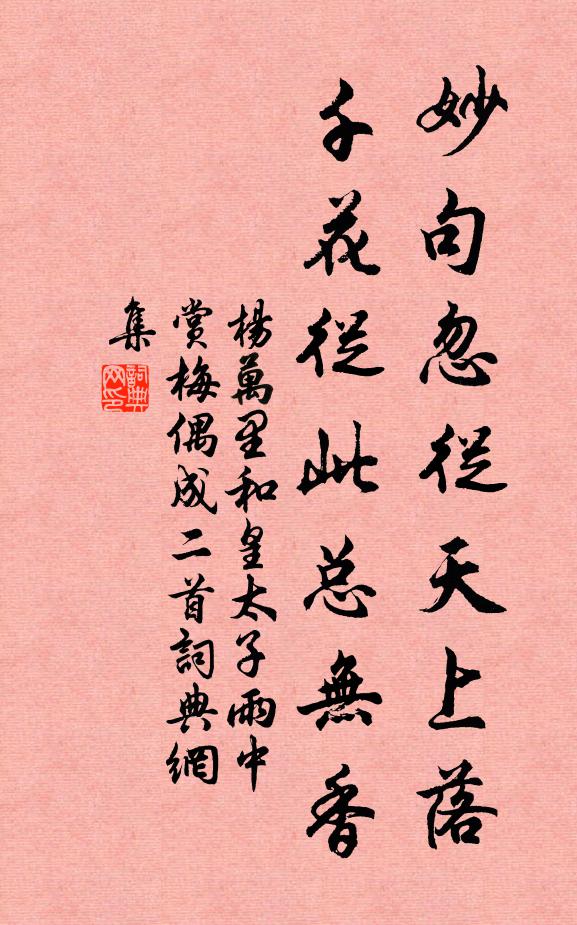 妙句忽從天上落
千花從此总無香
楊萬里和皇太子雨中
賞梅偶成二首詞典網
集
詞典
网印